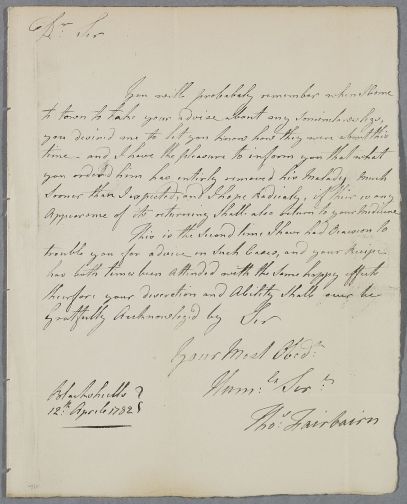 Dr Sir
You will probably remember when I came
to town to take your advise about my Son's
you desired me to let you know how they were about this
time - and I have the pleasure to inform you that what
you ordered him has entirely removed his Malady, Much
sooner than I expected, and I hope Radicaly, if there is any
Appearance of its returning Shall also return to your Medicine
This is the Second time I have had Occasion to
trouble you for advice in Such Cases, and your Recipe
has both times been Attended with the Same happy effects
therefore your discretion and Ability Shall ever be
Gratfully Acknowledg'd by Sir
Your Most Obedt
Humle Servt
Thos Fairbairn
12th Aprile 1782